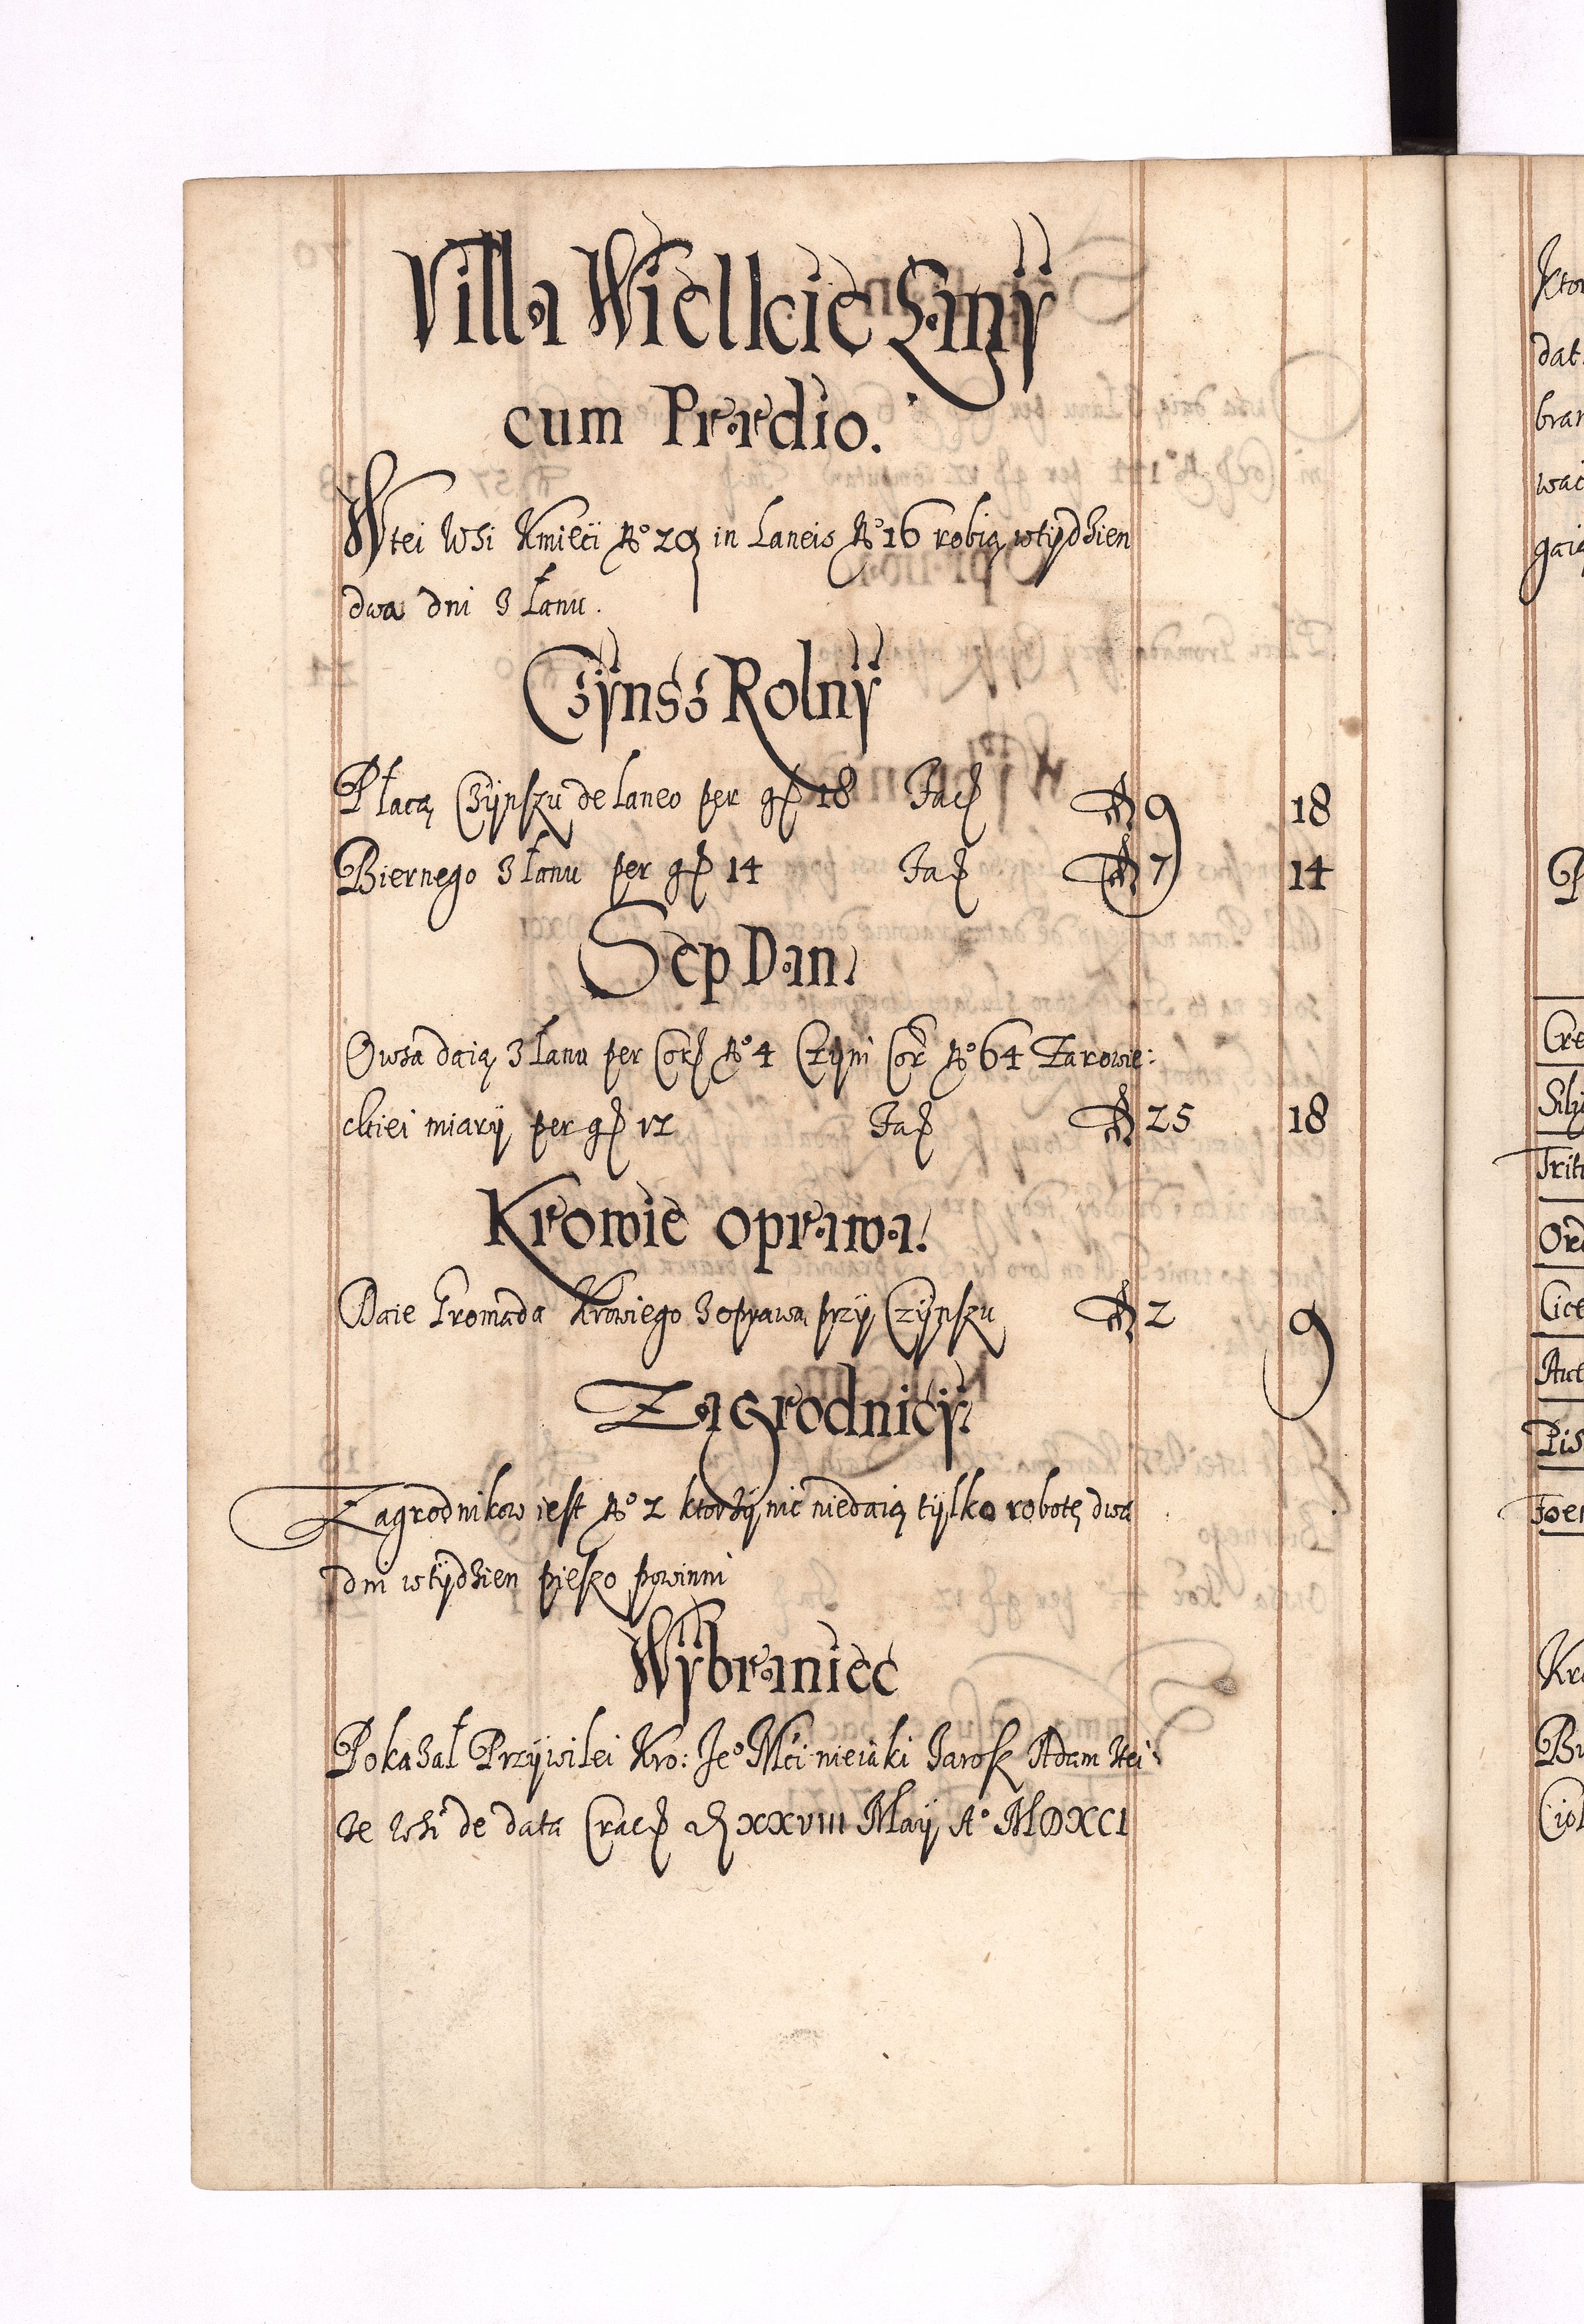 Villa Wielkie Łany
cum Prædio.
W tei Wsi Kmieci No 29 in Laneis No 16 robią wtÿdzien
dwa dni z łanu.
Czÿnss Rolnÿ
Płacą Czÿnszu de Laneo per gr 18 Fac fl 9 18
Biernego z łanu per gr 14 Fac fl 7 14
Sep Dan.
Owsa daią z łanu per Cor No 4 Czÿni Cor No 64 Tarowie:
ckiei miarÿ per gr 12 Fac fl 25 18
Krowie oprawa.
Daie Gromada Krowiego z oprawą przÿ Czÿnszu fl 2 9
Zagrodnicÿ.
Zagrodnikow iest No 2 ktorzÿ nic niedaią tÿlko robotę dwa
dni wtÿdzien pieszo powinni
Wÿbraniec
Pokazał Przÿwilei Kro: Jeo Mci nieiaki Jarosz Adam ztei:
ze Wsi de data Crac d XXVIII Maÿ Ao MDXCI
ktor
dat.
bran
wac
gaią
P
Cre
Tritu
Ord
Cice
Pis
Foen
Kro